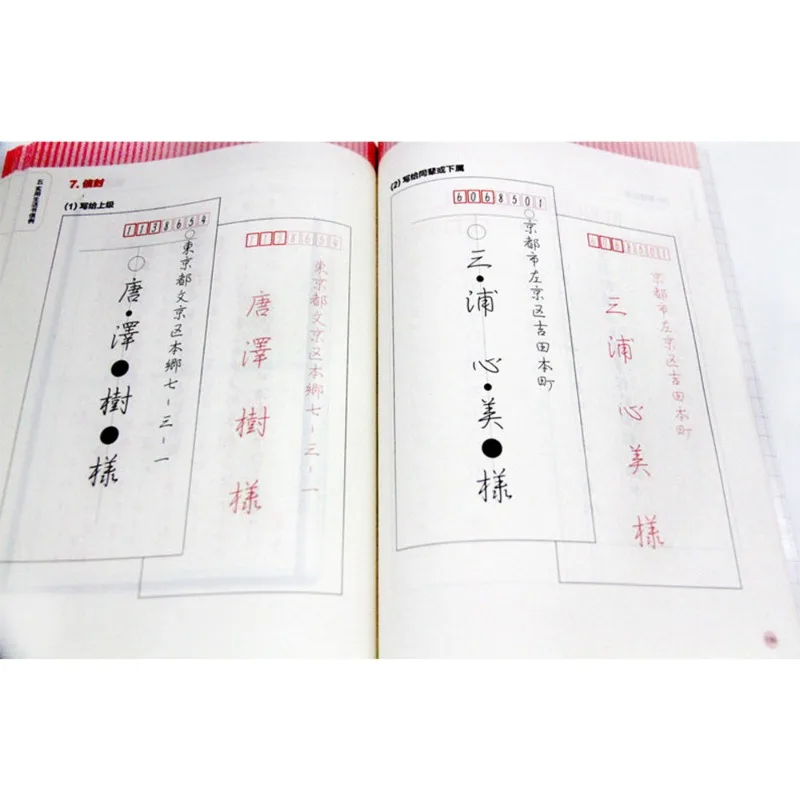 五 实用生活书信例
7. 信封
(1) 写给上级
1138654
東京都文京区本郷七-三-一
唐澤樹様
1138654
東京都文京区本郷七-三-一
唐澤樹様
(2) 写给同辈或下属
6068501
京都市左京区吉田本町
三浦心美様
6068501
京都市左京区吉田本町
三浦心美様